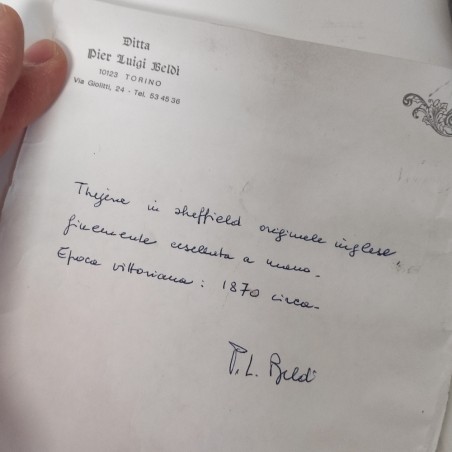 Ditta
Pier Luigi Beldi
10123 TORINO
Via Giolitti, 24 - Tel. 53 45 36
Theiera in sheffield originale inglese,
finemente cesellata a mano.
Epoca vittoriana: 1870 circa.
P. L. Beldi